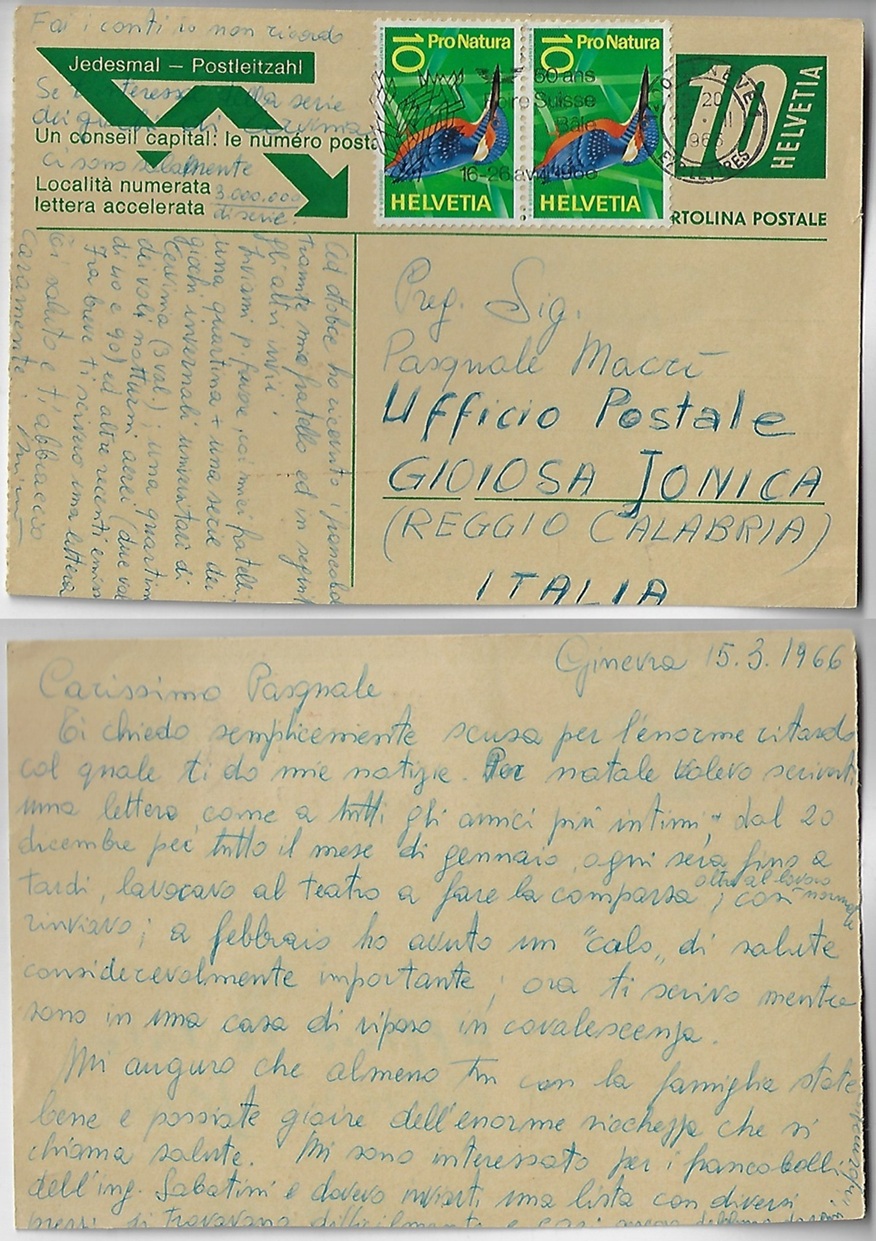 Fai i conti io non ricordo
Jedesmal – Postleitzahl
Se ti interessa della serie
dei giochi di Cervinia
Un conseil capital: le numéro posta
ci sono solamente
Località numerata 3.000.000
lettera accelerata di serie.
10 Pro Natura
HELVETIA
10 Pro Natura
HELVETIA
50 ans
Foire Suisse
Bâle
16-26 avril 1966
20
1966
10 HELVETIA
RTOLINA POSTALE
Ad ottobre ho ricevuto i francobol
tramite mio fratello ed in seguito
gli altri invii.
Inviami p. favore, coi miei fratelli,
una quartina + una serie dei
giochi invernali universitari di
Cervinia (3 val.); una quartina
dei voli notturni aerei (due val
di 40 e 90) ed altre recenti emiss
Fra breve ti scriverò una lettera
Ti saluto e t'abbraccio
caramente.
Preg. Sig.
Pasquale Macrì
Ufficio Postale
GIOIOSA JONICA
(REGGIO CALABRIA)
ITALIA
Ginevra 15.3.1966
Carissimo Pasquale
Ti chiedo semplicemente scusa per l'enorme ritardo
col quale ti do mie notizie. Per natale volevo scriverti
una lettera come a tutti gli amici più intimi; dal 20
dicembre per tutto il mese di gennaio, ogni sera fino a
tardi, lavoravo al teatro a fare la comparsa oltre al lavoro normale; così
rinviavo; a febbraio ho avuto un "calo„ di salute
considerevolmente importante; ora ti scrivo mentre
sono in una casa di riposo in covalescenza.
Mi auguro che almeno tu con la famiglia state
bene e possiate gioire dell'enorme ricchezza che si
chiama salute. Mi sono interessato per i francobolli
dell'ing. Sabatini e dovevo inviarti una lista con diversi
prezzi. Si trovavano difficilmente e così ancora